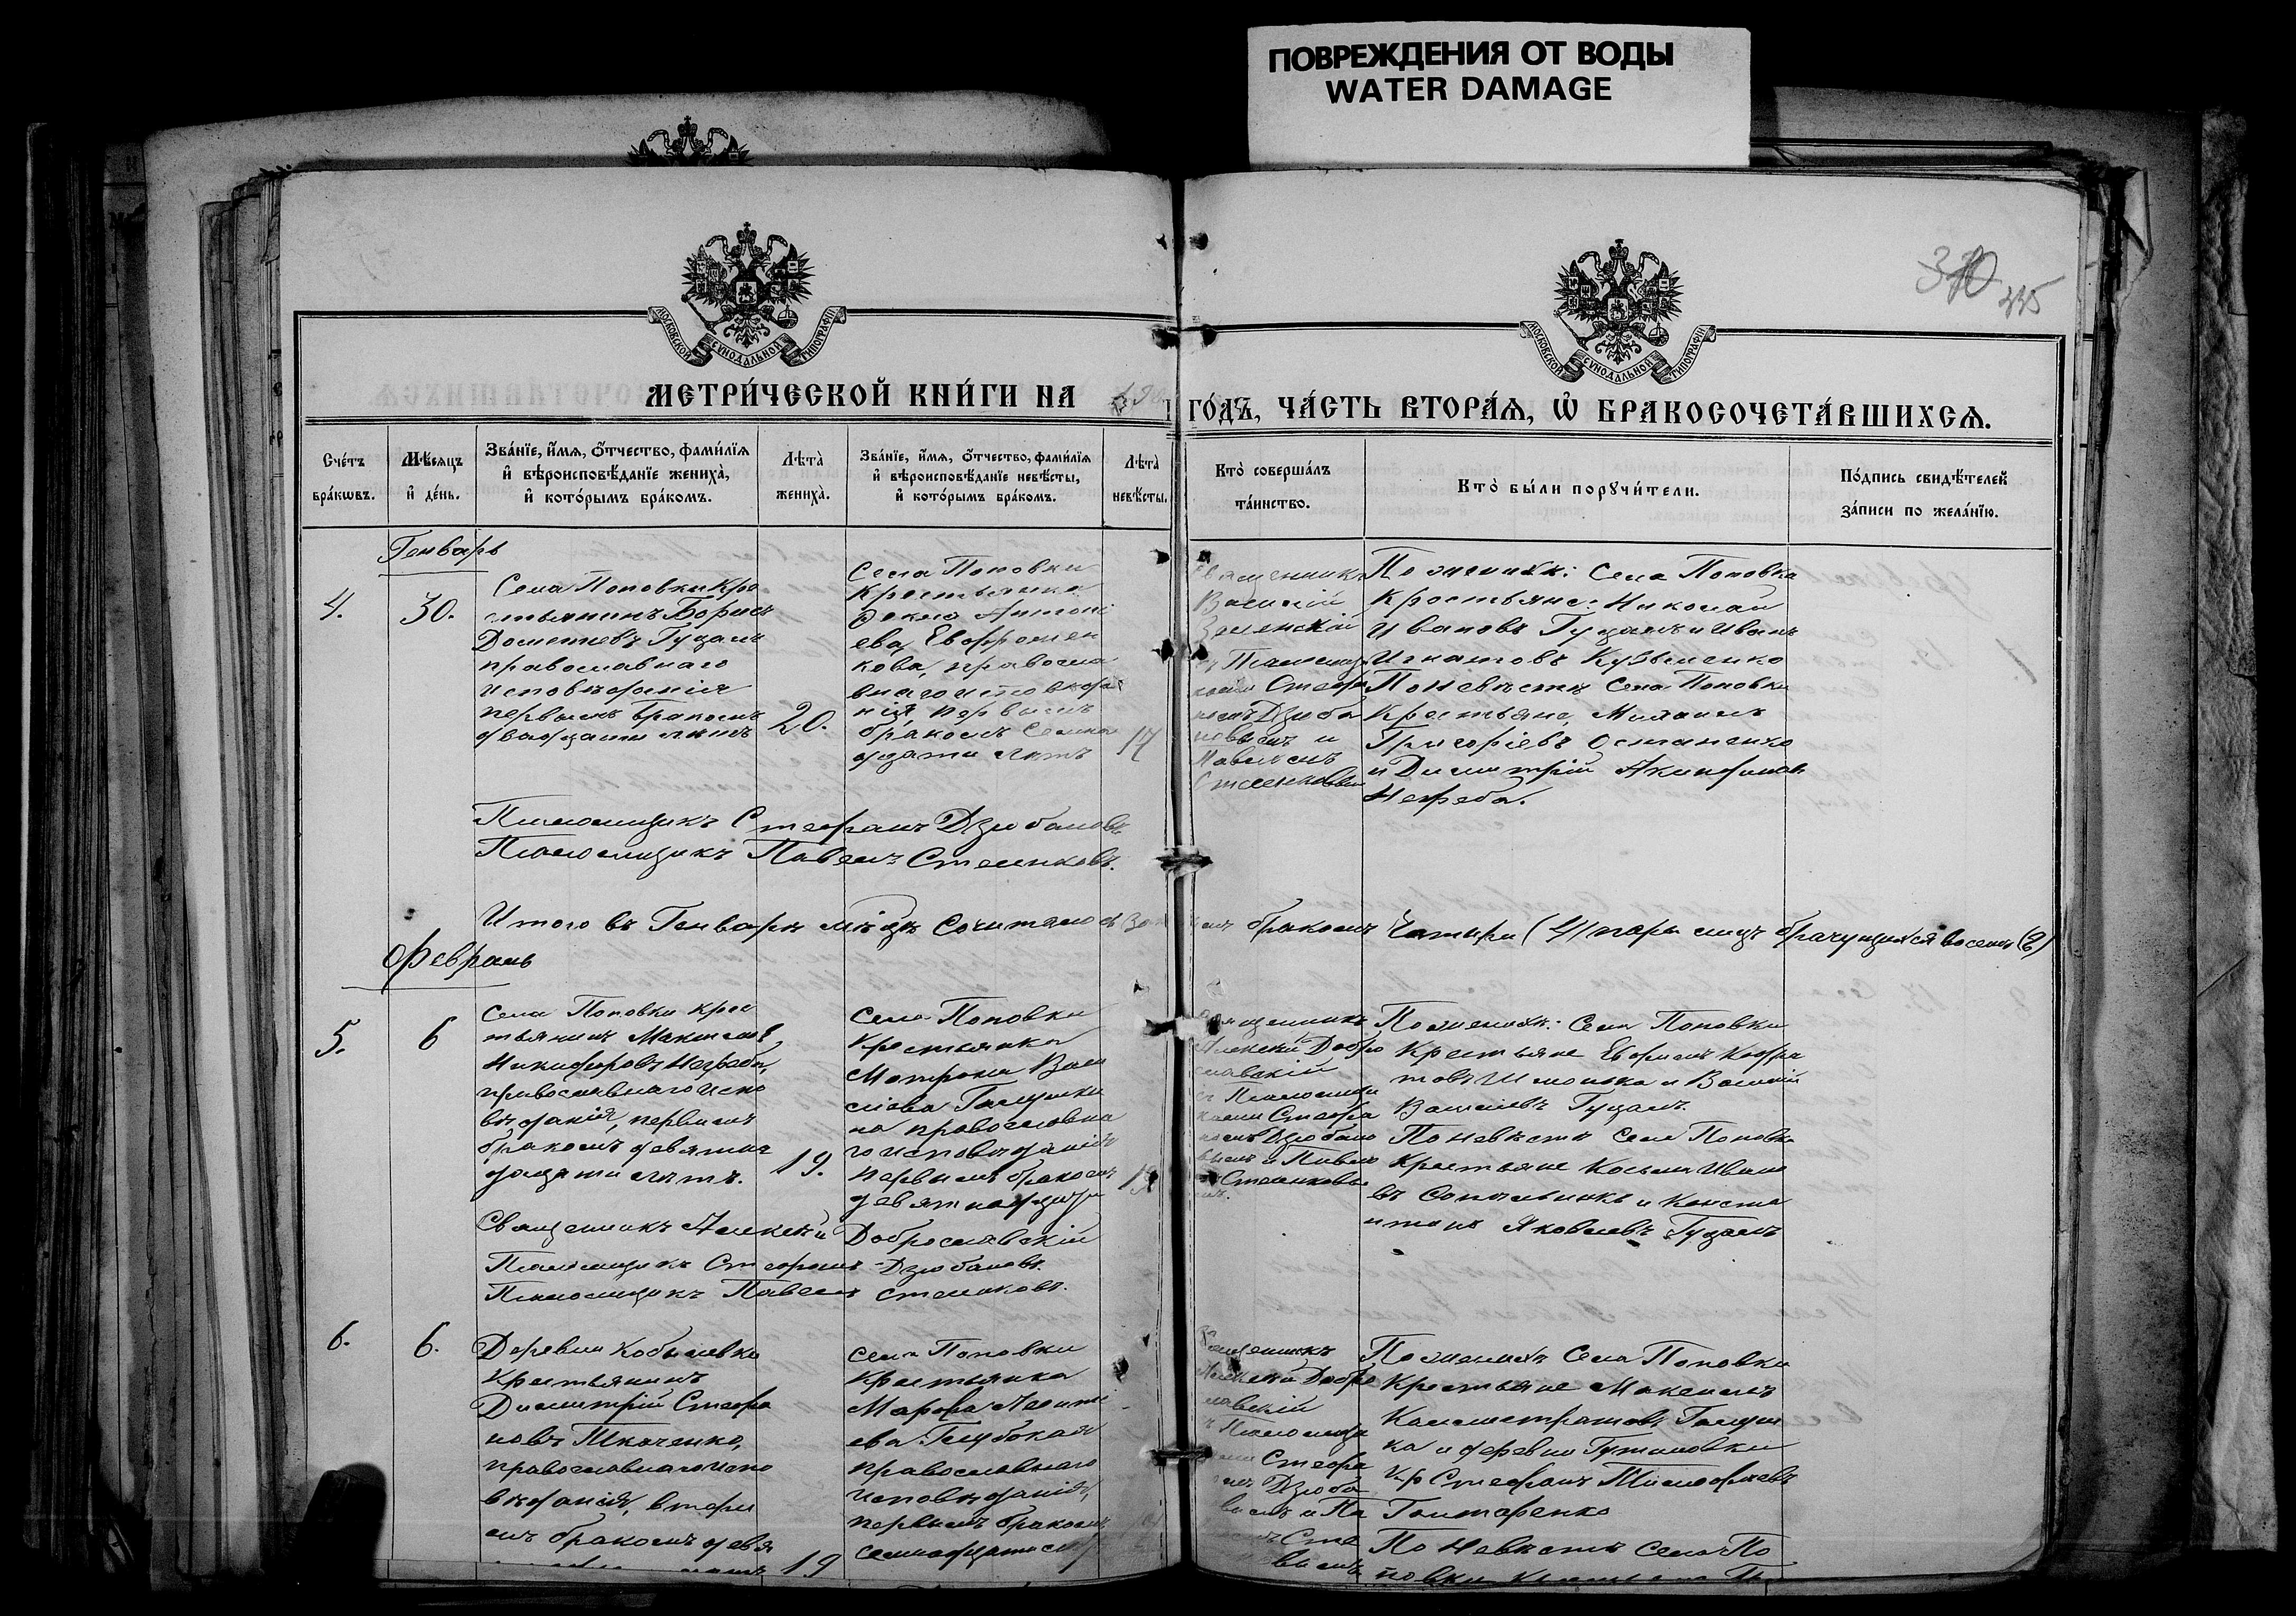 ПОВРЕЖДЕНИЯ ОТ ВОДЫ
WATER DAMAGE
370
335
МОСКОВСКОЙ СѴНОДАЛЬНОЙ ТИПОГРАФІИ
МОСКОВСКОЙ СѴНОДАЛЬНОЙ ТИПОГРАФІИ
МЕТРИ́ЧЕСКОЙ КНИ́ГИ НА
ГО́ДЪ, ЧА́СТЬ ВТОРА́Ѧ, Ѽ БРАКОСОЧЕТА́ВШИХСѦ.
Сче́тъ бра́кωвъ.
Мѣ́сѧцъ и҆ де́нь.
Зва́нїе, и҆́мѧ, ѻ҆́тчество, фами́лїѧ и҆ вѣроисповѣ́данїе жениха̀, и҆ кото́рымъ бра́комъ.
Лѣта̀ жениха̀.
Зва́нїе, и҆́мѧ, ѻ҆́тчество, фами́лїѧ и҆ вѣроисповѣ́данїе невѣ́сты, и҆ кото́рымъ бра́комъ.
Лѣта̀ невѣ́сты.
Кто̀ соверша́лъ та́инство.
Кто̀ бы́ли порꙋчи́тели.
По́дпись свидѣ́телей за́писи по жела́нїю.
Генварь
4.
30.
Села Поповки Кре
стьянинъ Борисъ
Дометіевъ Гуцалъ
православнаго
исповѣданія
первымъ бракомъ
двадцати лѣтъ
20.
Села Поповки
Крестьянка
Фекла Антоні
ева Евфремен
кова, правосла
внаго исповѣда
нія, первымъ
бракомъ Семнад
цати лѣтъ
17
Священникъ
Василій
Зеленскій
Псаломщи
Стефа
номъ Дзюба
новымъ и
Павломъ
По женихѣ: Села Поповки
Крестьяне: Николай
Ивановъ Гуцалъ и Иванъ
Игнатовъ Кузьменко
По невѣстѣ Села Поповки
Крестьяне, Михаилъ
Григоріевъ Остапенко
и Димитрій Акиндиновъ
Негреба.
Псаломщикъ Стефанъ Дзюбановъ
Псаломщикъ Павелъ Стеенковъ.
Итого въ Генварѣ мѣсяцѣ Сочиталось
бракомъ Четыри (4) пары лицъ брачущихся восемь (8)
Февраль
5.
6
Села Поповки Крес
тьянинъ Максимъ
Никифоровъ Негреба,
православнаго испо
вѣданія, первымъ
бракомъ девятнад
цати лѣтъ.
19.
Села Поповки
Крестьянка
Матрона Васи
ліева Галушки
на православна
го исповѣданія
первымъ бракомъ
девятнадцати
19
Священникъ
Алексій Добро
славскій
Псаломщи
ками Стефа
номъ Дзюбано
вымъ и Павло
По женихѣ: Села Поповки
Крестьяне Ефримъ Кодра
товъ Шмонька и Василій
Васильевъ Гуцалъ.
По невѣстѣ Села Поповки
Крестьяне Косьма Ивано
въ Сопильникъ и Конста
нтинъ Яковлевъ Гуцалъ
Священникъ Алексій Доброславскій
Псаломщикъ Стефанъ Дзюбановъ.
Псаломщикъ Павелъ Стеенковъ.
6.
6.
Деревни Кобылевки
Крестьянинъ
Димитрій Стефа
новъ Ткаченко,
православнаго испо
вѣданія, вторы
мъ бракомъ девя
19
Села Поповки
Крестьянка
Марфа Леонті
ева Глубокая
православнаго
исповѣданія,
первымъ бракомъ
семнадцати
Священникъ
Алексій Добро
славскій
Псаломщи
Стефа
Дзюба
и Па
По женихѣ Села Поповки
Крестьяне Максимъ
Каллистратовъ Галуш
ка и деревни Гутыловки
Кр Стефанъ Тимофеевъ
Гонтаренко
По Невѣстѣ Села По
повки